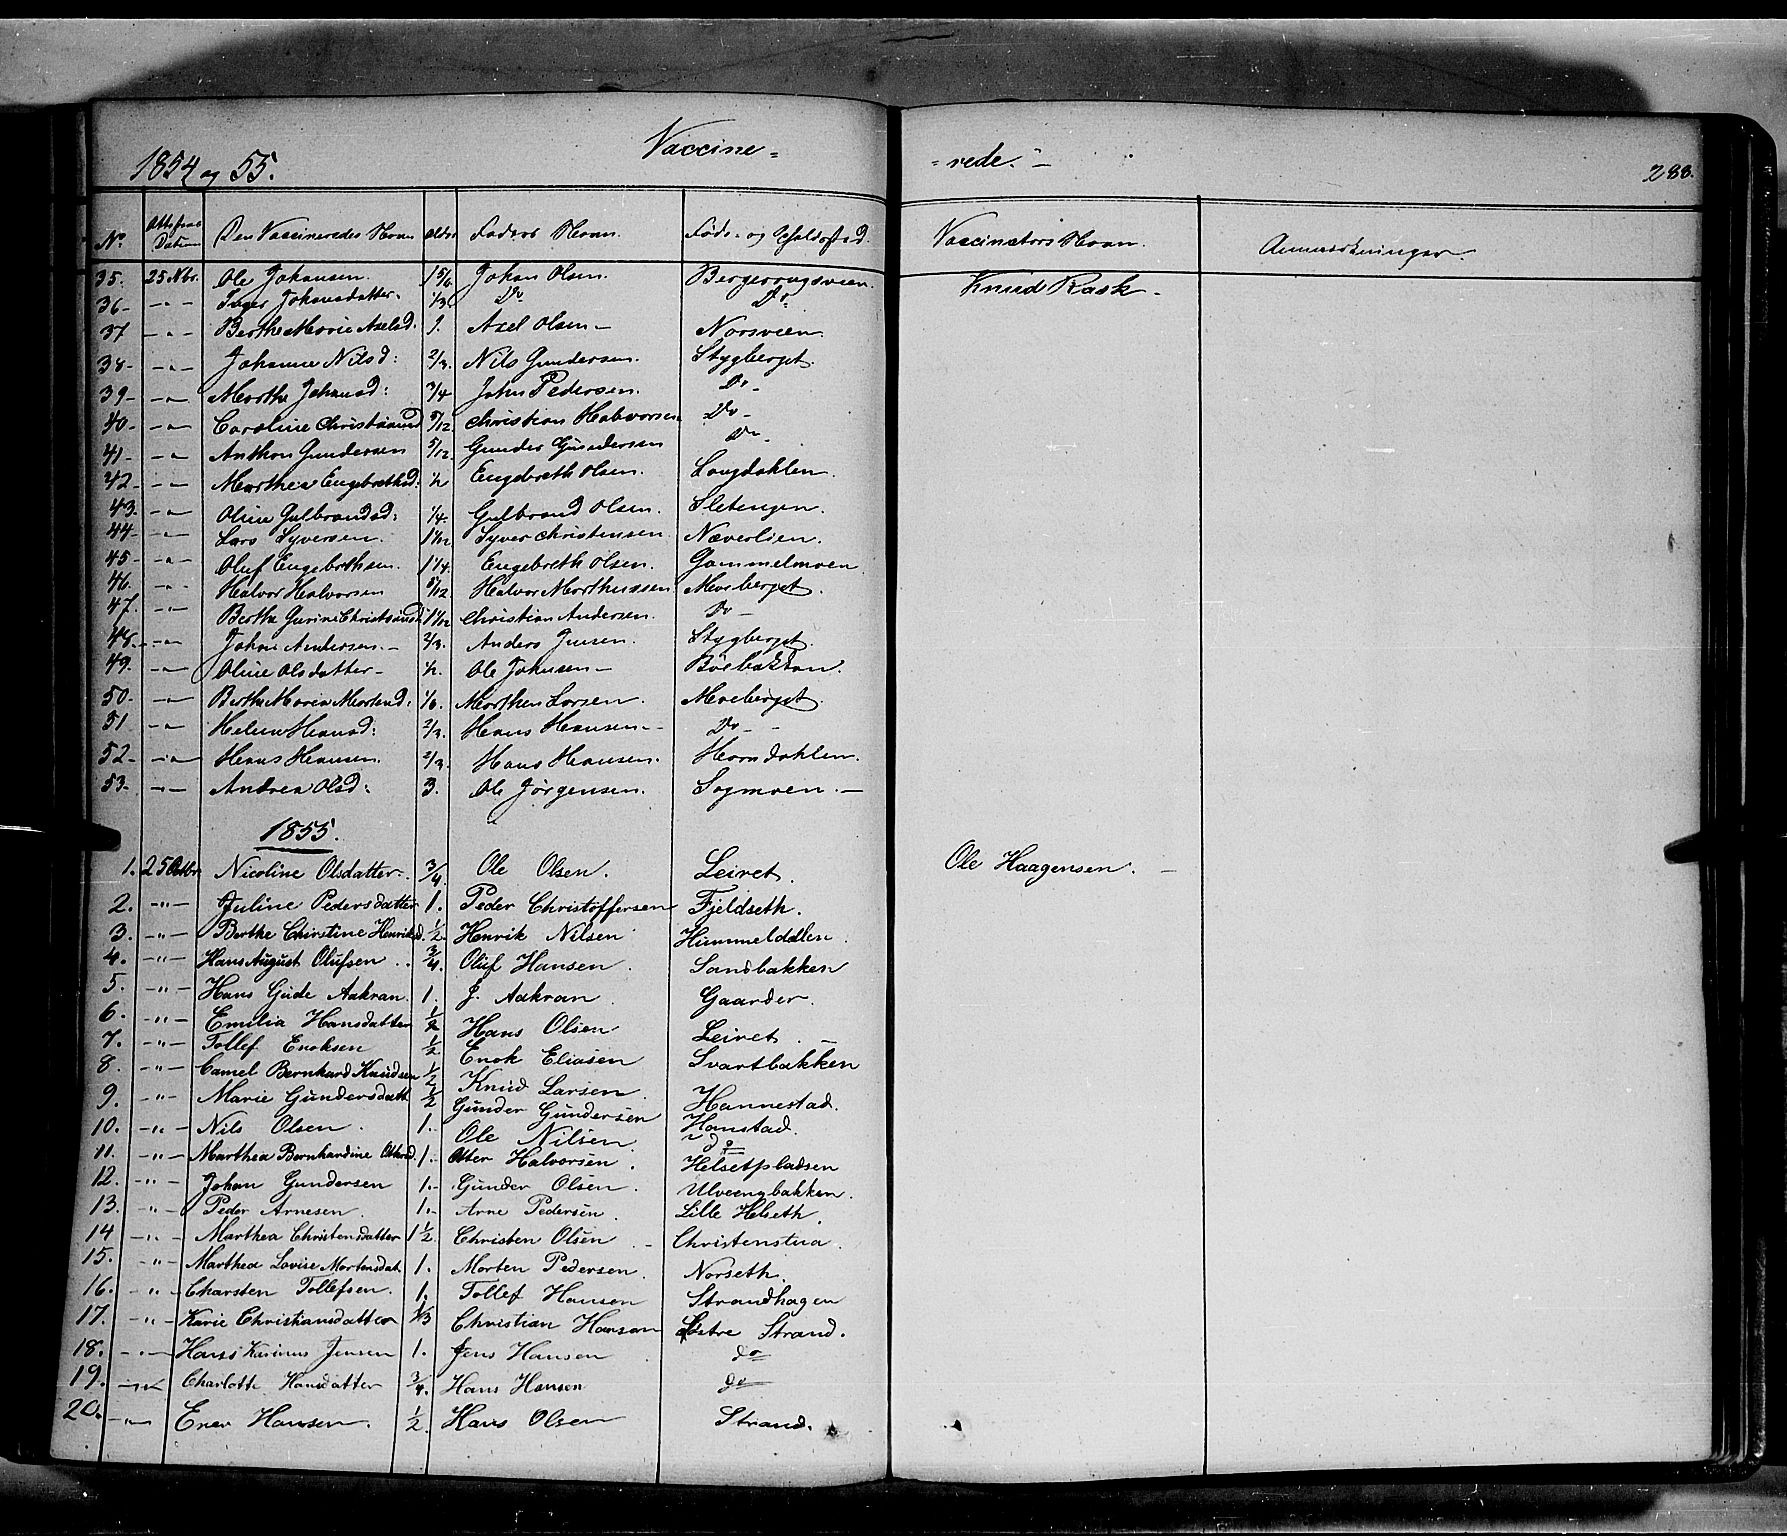 1854 og 55. Vaccine= =rede.- 288.
No. Attestens Datum Den Vaccineredes Navn Alder Faders Navn. Føde- og Opholdssted. Vaccinators Navn. Anmærkninger.
35. 25 Nbr. Ole Johansen. 1 5/6 Johan Olsen. Bergerrugsveien. Knud Rask -
36- -"- Inger Johansdatter- 1/3 Do Do
37 -"- Berthe Marie Axelsd. 1. Axel Olsen- Norsveen.
38- -"- Johanne Nilsd: 2/3. Nils Gundersen. Stygberget.
39- -"- Marthe Johansd: 3/4 John Pedersen. Do-
40- -"- Caroline Christiansd 5/12 Christian Halvorsen Do-
41- -"- Anthon Gundersen 5/12. Gunder Gundersen Do-
42- -"- Marthea Engebrethsd: 1/2 Engebreth Olsen. Langdahlen.
43. -"- Oline Gulbrandsd: 1/4. Gulbrand Olsen. Sletengen.
44- -"- Lars Syversen. 1 1/12 Syver Christensen. Næverlien.
45- -"- Oluf Engebrethsen. 1 1/4 Engebreth Olsen. Gammelmoen
46. -"- Halvor Halvorsen 5/12 Halvor Marthinssen Moeberget.
47. -"- Berthe Gurine Christiansd 1 1/12 Christian Andersen. Do-
48- -"- Johan Andersen.- 2/3. Anders Jensen. Stygberget.
49. -"- Oline Olsdatter- 1/2. Ole Johnsen- Børbakken.
50- -"- Berthe Maria Mortensd: 1/6. Morthen Larsen. Moeberget.
51 -"- Helene Hansd: 2/3. Hans Hansen- Do-
52- -"- Hans Hansen. 2/3. Hans Hansen. Horndahlen.
53- -"- Andrea Olsd: 3. Ole Jörgensen. Sogmoen.-
1855.
1. 25 Octbr. Nicoline Olsdatter. 3/4. Ole Olsen. Leiret. Ole Haagensen.-
2. -"- Juline Pedersdatter 1. Peder Christoffersen Fjeldseth.
3. -"- Berthe Chirstine Henriksd. 1/2 Henrik Nilsen Himmeldalen.
4. -"- Hans August Olufsen. 3/4. Oluf Hansen. Sandbakken
5. -"- Hans Gude Aakran. 1. J. Aakran. Gaarder.
6. -"- Emilia Hansdatter 1/2 Hans Olsen Leiret.-
7. -"- Tollef Enoksen 1/2 Enok Eliasen Svartbakken
8. -"- Camel Bernhard Knudsen 1/2 Knud Larsen. Hannestad.
9. -"- Marie Gundersdatt 1/2 Gunder Gundersen Hanstad.
10. -"- Nils Olsen. 1. Ole Nilsen do
11. -"- Marthea Bernhardine Ottersd. 1. Otter Halvorsen. Helsetpladsen
12. -"- Johan Gundersen 1.- Gunder Olsen. Ulveengbakken.
13. -"- Peder Arnesen. 1.- Arne Pedersen. Lille Helseth.
14 -"- Marthea Christensdatter 1 1/2. Christen Olsen- Christenstua.
15. -"- Marthea Lovise Mortensdat. 1. Morten Pedersen. Norseth.
16. -"- Charsten Tollefsen. 1. Tollef Hansen Strandhagen
17. -"- Karie Christiansdatter 1/3 Christian Hansen Østre Strand.
18. -"- Hans Karinus Jensen 1. Jens Hansen do
19. -"- Charlotte Hansdatter 3/4. Hans Hansen do
20. -"- Ener Hansen. 1/2 Hans Olsen Strand.